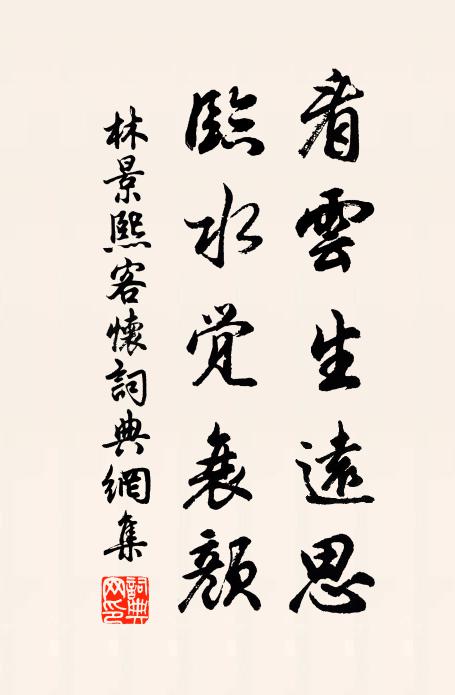 看雲生遠思
臨水觉衰顏
林景熙客懷詞典網集
詞典网印